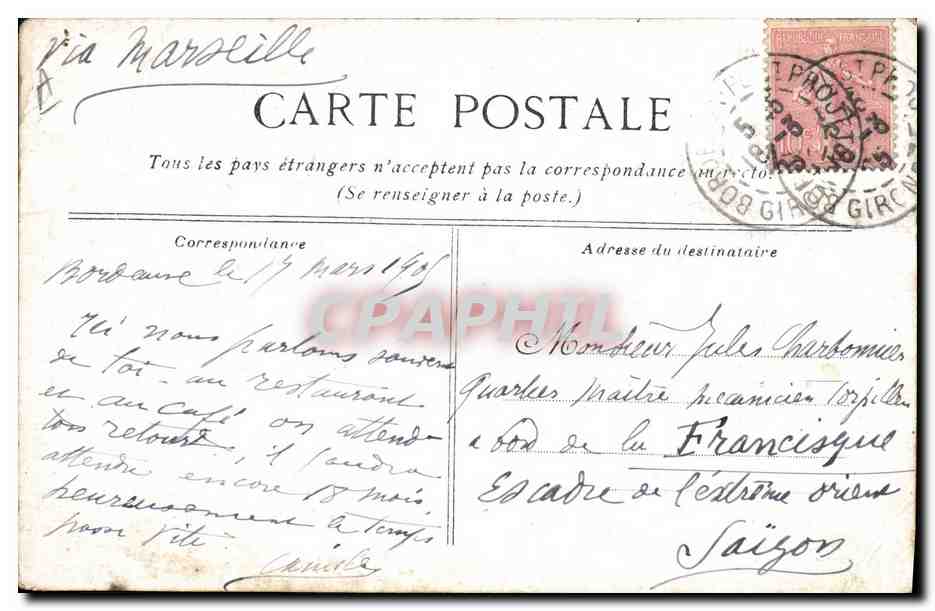 Via Marseille
A
CARTE POSTALE
Tous les pays étrangers n'acceptent pas la correspondance au recto.
(Se renseigner à la poste.)
REPUBLIQUE FRANÇAISE
GIRONDE
GIRONDE
Correspondance
Bordeaux le 17 mars 1905
Ici nous parlons souvent
de toi - au restaurant
et au café on attend
ton retour, il faudra
attendre encore 18 mois,
heureusement le temps
passe vite.
Camille
Adresse du destinataire
Monsieur Jules Charbonnier
Quartier Maître mécanicien torpilleur
a bord de la Francisque
Escadre de l'extrême orient
Saïgon
CPAPHIL